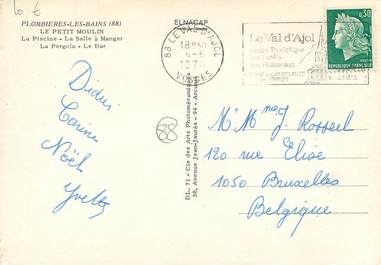 10 €
PLOMBIERES-LES-BAINS (88)
LE PETIT MOULIN
La Piscine - La Salle à Manger
La Pergola - Le Bar
ELNACAP
88 LE VAL D'AJOL
18H30
VOSGES
Le Val d'Ajol
0,30
REPUBLIQUE FRANÇAISE
Didier
Corine
Noël
Yvette
88
DL. 71 - Cie des Arts Photomécaniques
Avenue Jean-Jaurès
M Mme J. Rosseil
120 rue Elise
1050 Bruxelles
Belgique